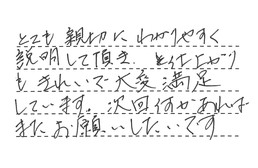 とても親切にわかりやすく
説明して頂き、仕上がり
もきれいで大変満足
しています。次回何かあれば
またお願いしたいです